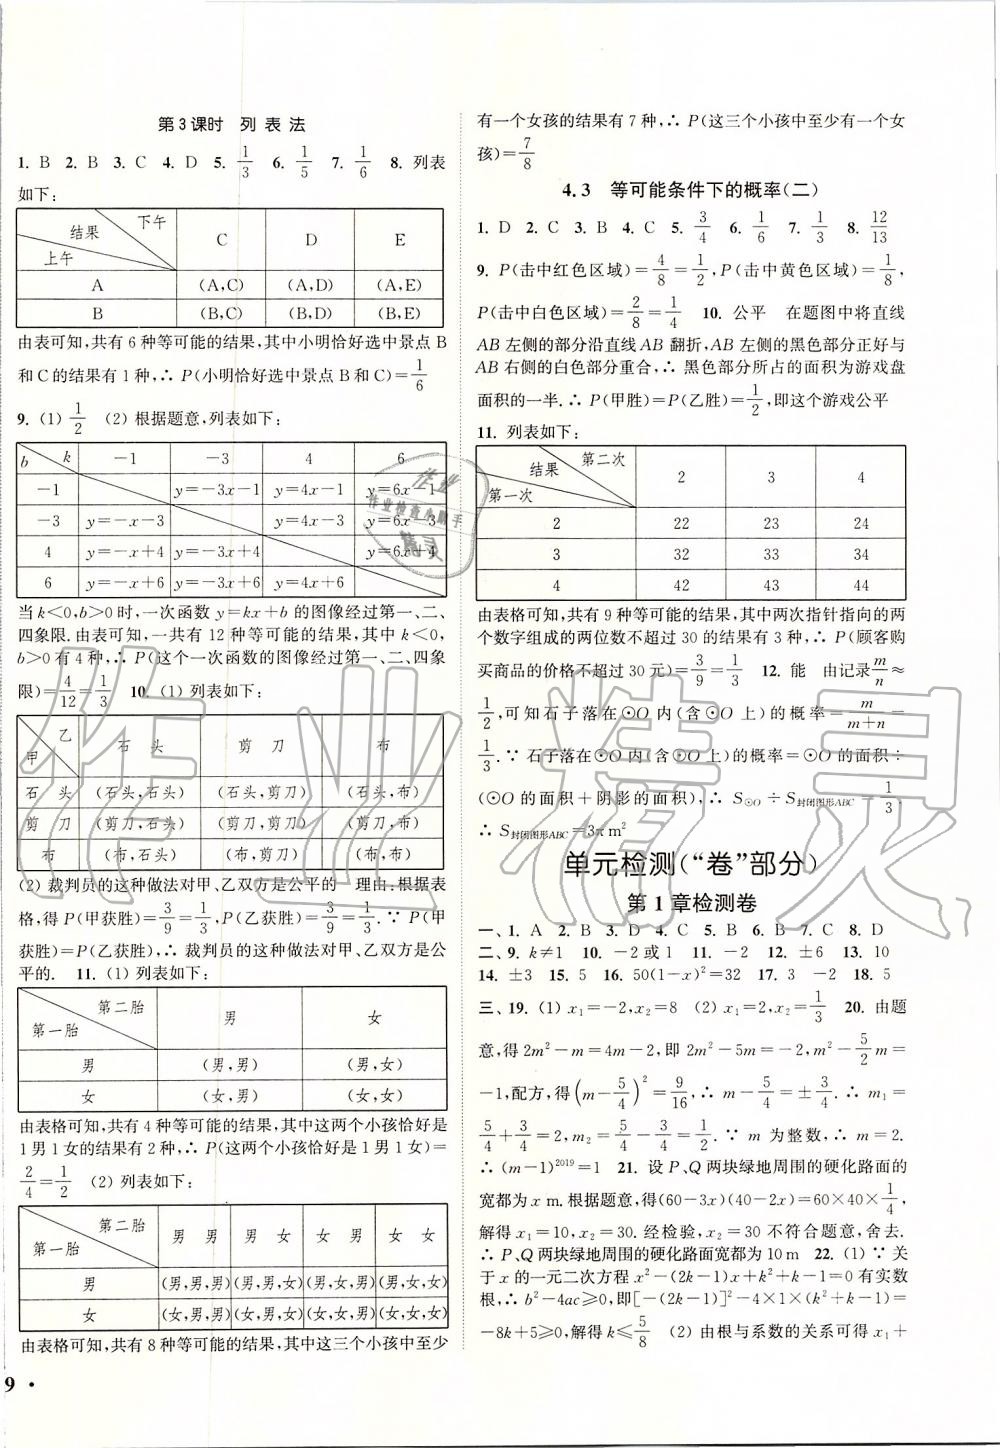 第3课时 列表法
1. B 2. B 3. C 4. D 5. 1/3 6. 1/5 7. 1/6 8. 列表
如下:
结果 下午 上午 C D E
A (A,C) (A,D) (A,E)
B (B,C) (B,D) (B,E)
由表可知,共有6种等可能的结果,其中小明恰好选中景点B
和C的结果有1种,∴ P(小明恰好选中景点B和C)=1/6
9. (1) 1/2 (2) 根据题意,列表如下:
b k −1 −3 4 6
−1 y=−3x−1 y=4x−1 y=6x−1
−3 y=−x−3 y=4x−3 y=6x−3
4 y=−x+4 y=−3x+4 y=6x+4
6 y=−x+6 y=−3x+6 y=4x+6
当k<0,b>0时,一次函数y=kx+b的图像经过第一、二、
四象限.由表可知,一共有12种等可能的结果,其中k<0,
b>0有4种,∴ P(这个一次函数的图像经过第一、二、四象
限)=4/12=1/3 10. (1) 列表如下:
乙 甲 石头 剪刀 布
石头 (石头,石头) (石头,剪刀) (石头,布)
剪刀 (剪刀,石头) (剪刀,剪刀) (剪刀,布)
布 (布,石头) (布,剪刀) (布,布)
(2) 裁判员的这种做法对甲、乙双方是公平的 理由:根据表
格,得P(甲获胜)=3/9=1/3,P(乙获胜)=3/9=1/3.∵ P(甲
获胜)=P(乙获胜),∴ 裁判员的这种做法对甲、乙双方是公
平的. 11. (1) 列表如下:
第二胎 第一胎 男 女
男 (男,男) (男,女)
女 (女,男) (女,女)
由表格可知,共有4种等可能的结果,其中这两个小孩恰好是
1男1女的结果有2种,∴ P(这两个小孩恰好是1男1女)=
2/4=1/2 (2) 列表如下:
第二胎 第一胎 男 男 男 女 女 男 女 女
男 (男,男,男) (男,男,女) (男,女,男) (男,女,女)
女 (女,男,男) (女,男,女) (女,女,男) (女,女,女)
由表格可知,共有8种等可能的结果,其中这三个小孩中至少
9 •
有一个女孩的结果有7种,∴ P(这三个小孩中至少有一个女
孩)=7/8
4.3 等可能条件下的概率(二)
1. D 2. C 3. B 4. C 5. 3/4 6. 1/6 7. 1/3 8. 12/13
9. P(击中红色区域)=4/8=1/2,P(击中黄色区域)=1/8,
P(击中白色区域)=2/8=1/4 10. 公平 在题图中将直线
AB左侧的部分沿直线AB翻折,AB左侧的黑色部分正好与
AB右侧的白色部分重合,∴ 黑色部分所占的面积为游戏盘
面积的一半.∴ P(甲胜)=P(乙胜)=1/2,即这个游戏公平
11. 列表如下:
结果 第二次 第一次 2 3 4
2 22 23 24
3 32 33 34
4 42 43 44
由表格可知,共有9种等可能的结果,其中两次指针指向的两
个数字组成的两位数不超过30的结果有3种,∴ P(顾客购
买商品的价格不超过30元)=3/9=1/3 12. 能 由记录m/n≈
1/2,可知石子落在⊙O内(含⊙O上)的概率=m/(m+n)=
1/3.∵ 石子落在⊙O内(含⊙O上)的概率=⊙O的面积÷
(⊙O的面积+阴影的面积),∴ S⊙O÷S封闭图形ABC=1/3.
∴ S封闭图形ABC=3π m²
单元检测(“卷”部分)
第1章检测卷
一、1. A 2. B 3. D 4. C 5. B 6. B 7. C 8. D
二、9. k≠1 10. −2或1 11. −2 12. ±6 13. 10
14. ±3 15. 5 16. 50(1−x)²=32 17. 3 −2 18. 5
三、19. (1) x₁=−2,x₂=8 (2) x₁=2,x₂=1/3 20. 由题
意,得2m²−m=4m−2,即2m²−5m=−2,m²−5/2m=
−1,配方,得(m−5/4)²=9/16,∴ m−5/4=±3/4.∴ m₁=
5/4+3/4=2,m₂=5/4−3/4=1/2.∵ m为整数,∴ m=2.
∴ (m−1)²⁰¹⁹=1 21. 设P、Q两块绿地周围的硬化路面的
宽都为x m.根据题意,得(60−3x)(40−2x)=60×40×1/4,
解得x₁=10,x₂=30.经检验,x₂=30不符合题意,舍去.
∴ P、Q两块绿地周围的硬化路面宽都为10 m 22. (1) ∵ 关
于x的一元二次方程x²−(2k−1)x+k²+k−1=0有实数
根,∴ b²−4ac≥0,即[−(2k−1)]²−4×1×(k²+k−1)=
−8k+5≥0,解得k≤5/8 (2) 由根与系数的关系可得x₁+
作业精灵
作业
作业检查小助手
精灵